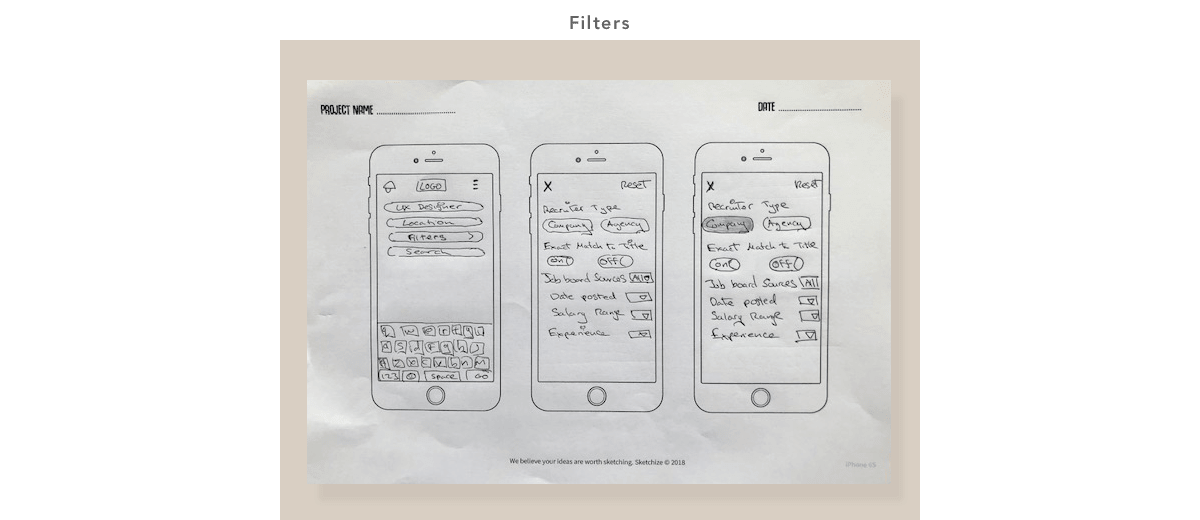 Filters
PROJECT NAME
DATE
LOGO
UX Designer
Location
Filters >
Search
123
Space
GO
X Reset
Recruiter Type
Company Agency
Exact Match to Title
On Off
Job board Sources All
Date posted
Salary Range
Experience
X Reset
Recruiter Type
Company Agency
Exact Match to Title
On Off
Job board Sources All
Date posted
Salary Range
Experience
We believe your ideas are worth sketching. Sketchize © 2018